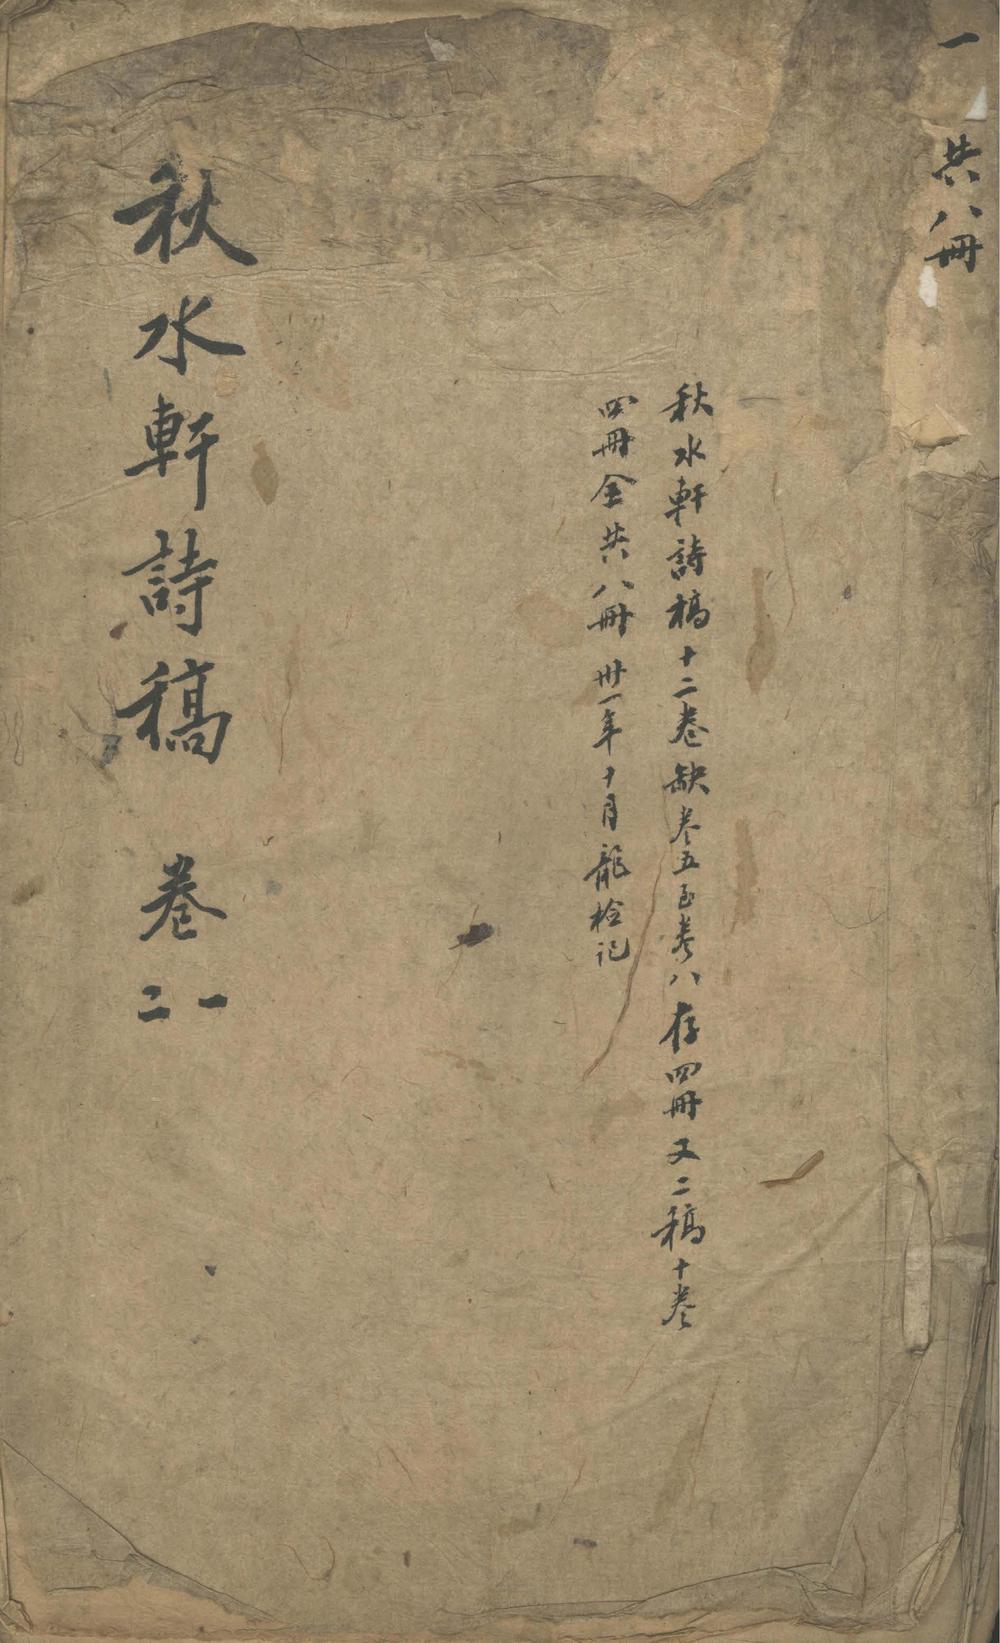 一 共八冊
秋水軒詩稿十二卷缺卷五至卷八存四冊又二稿十卷
四冊全共八冊 卅一年十月龍檢記
秋水軒詩稿 卷一二